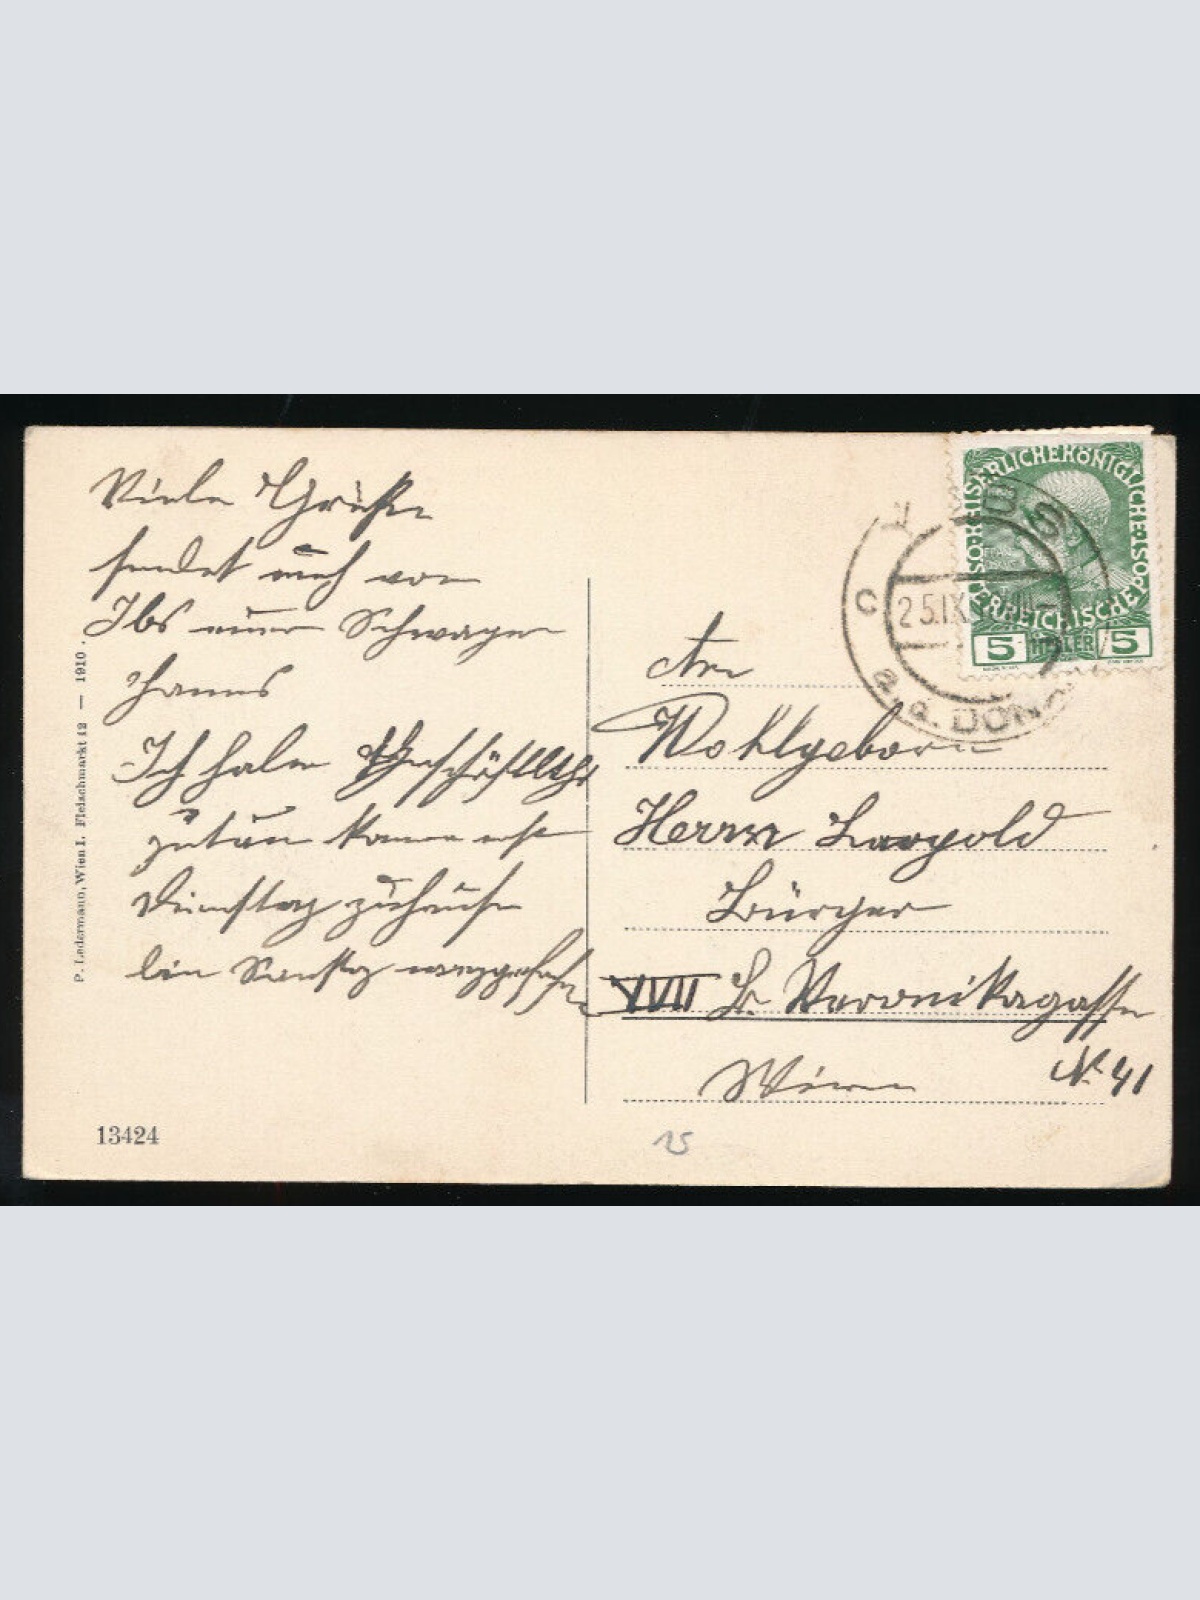 Viele Grüße
sendet euch von
Ibs euer Schwager
Hanns
Ich habe Geschäftlich
zutun komme erst
Dienstag zuhause
bin Samstag weggefahren
P. Ledermann, Wien I. Fleischmarkt 12 — 1910.
13424
KAISERLICHE KÖNIGLICHE ÖSTERREICHISCHE POST
5 HELLER 5
YBS
25.IX
c
a.d. DONAU
An
Wohlgeborn
Herrn Leopold
Bürger
XVII Veronikagasse
Wien
N. 41
15